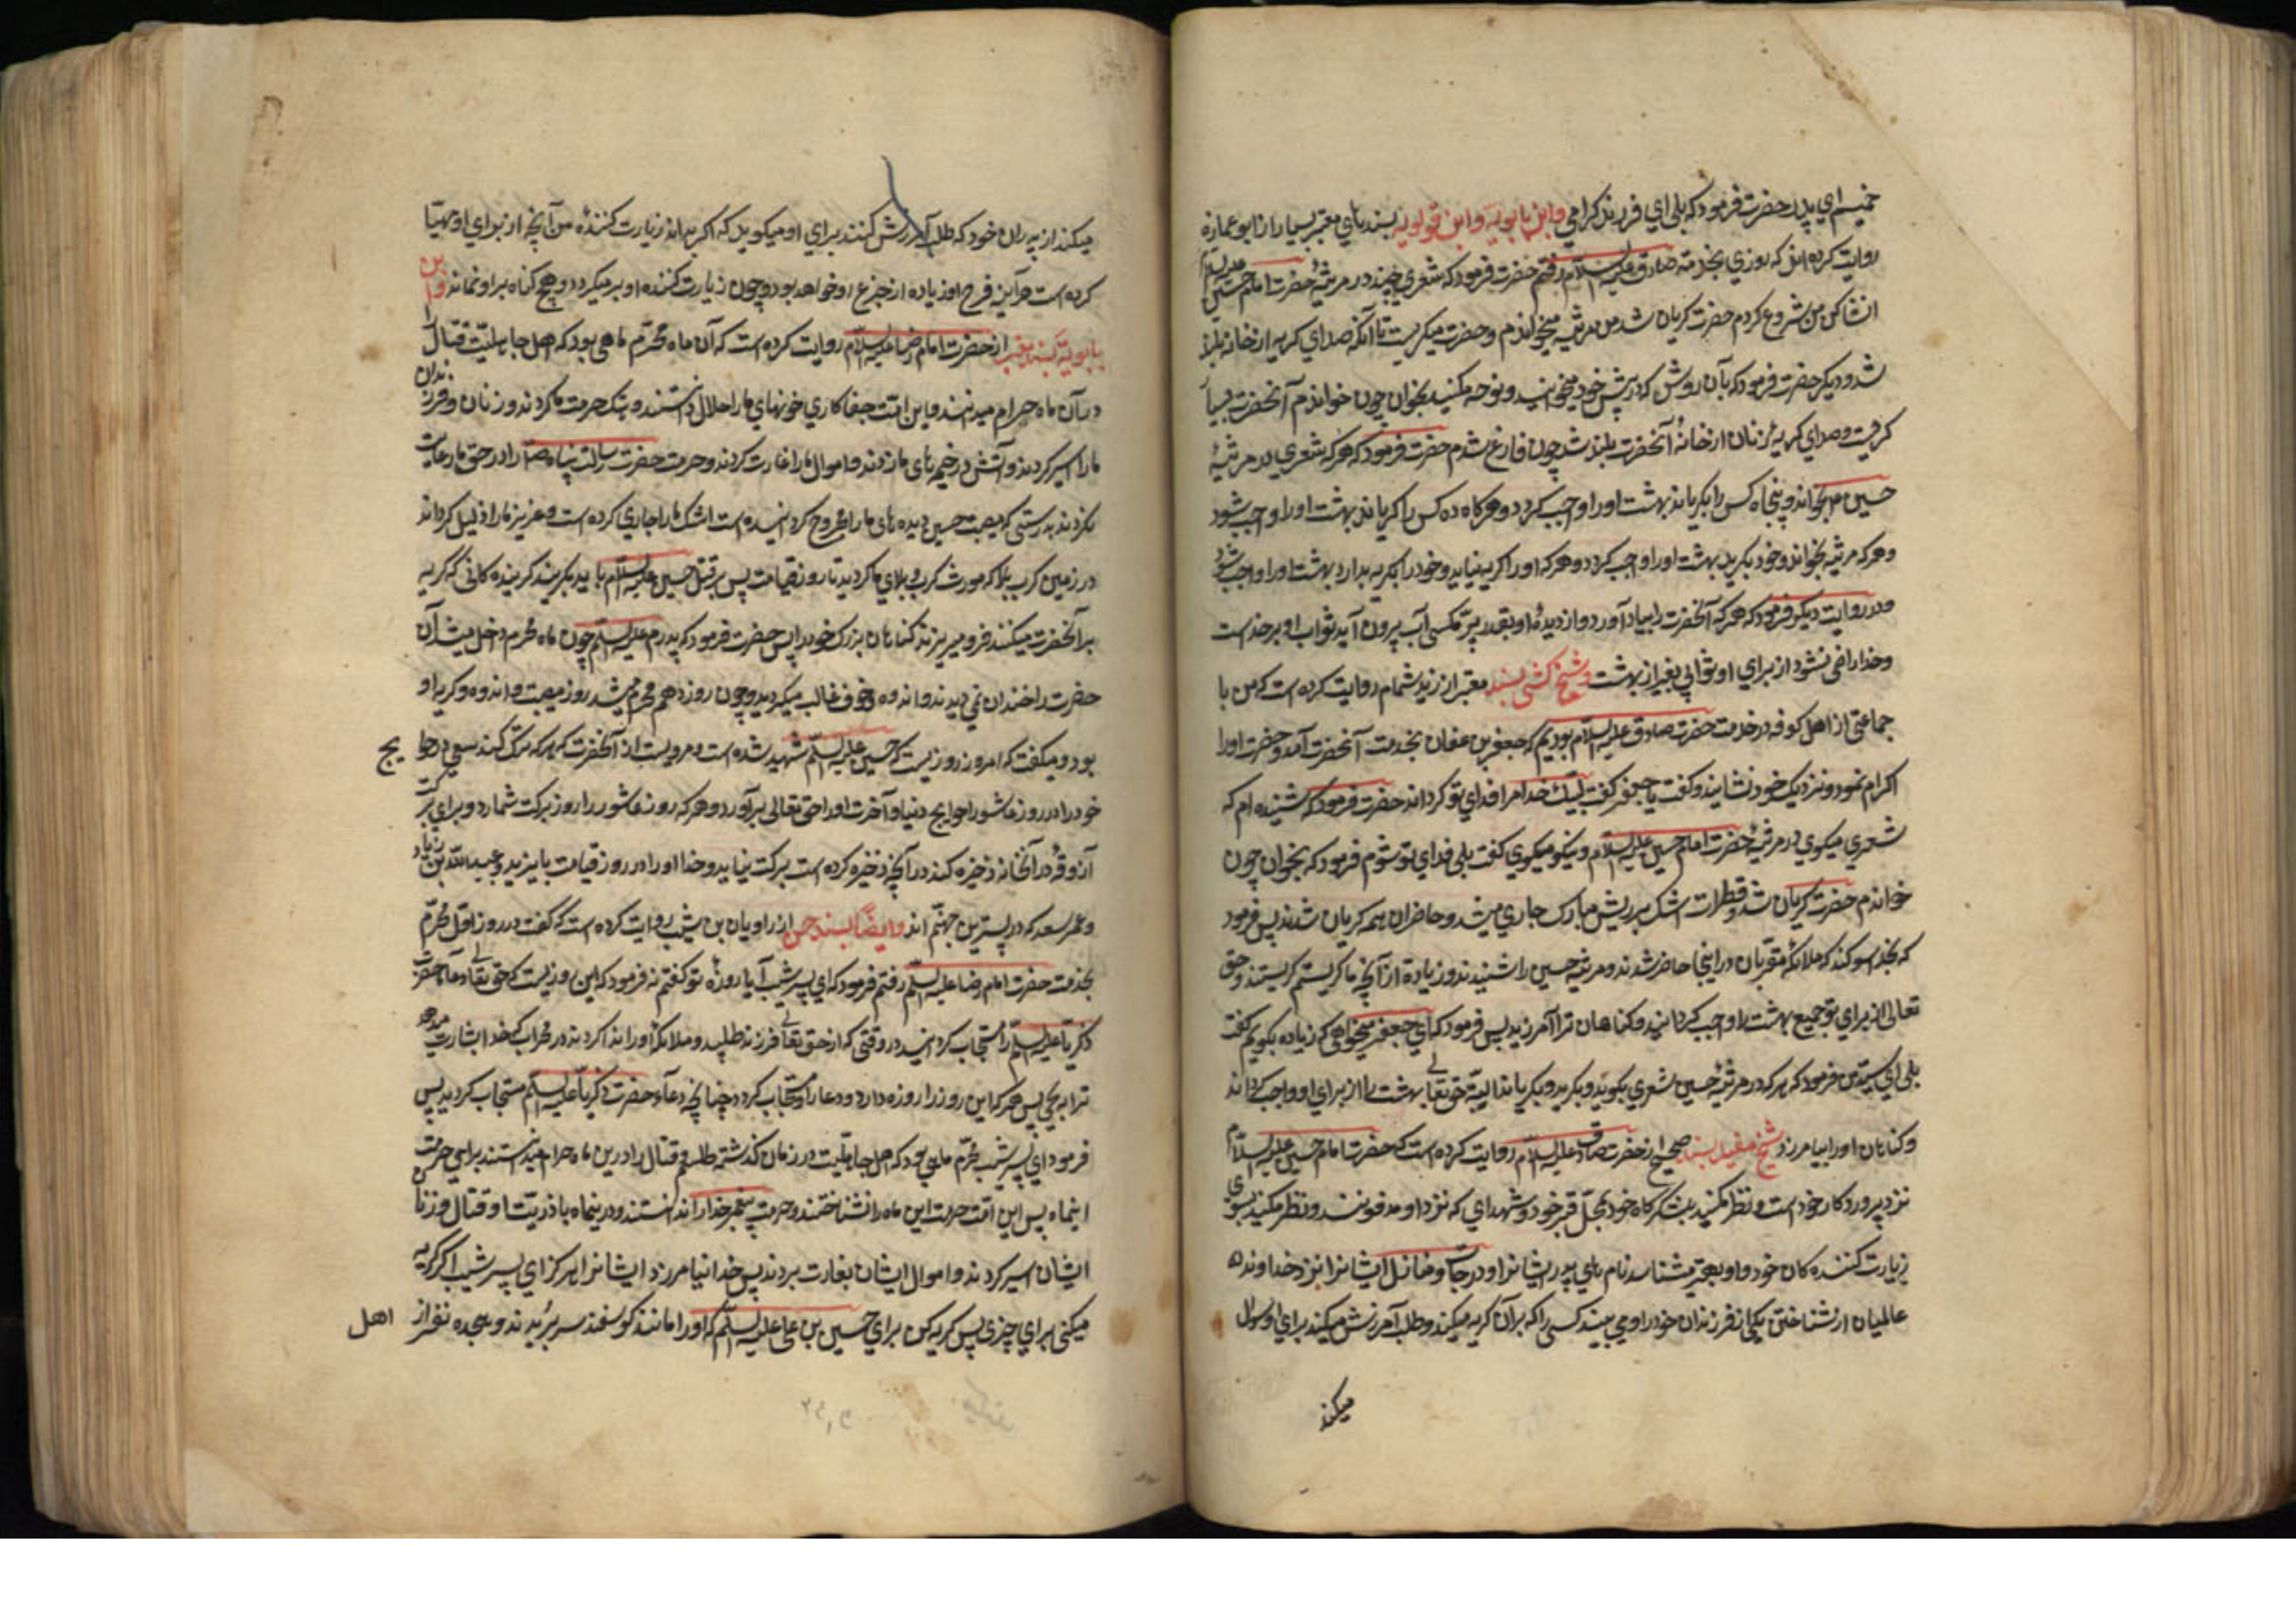 خمیسم ای پدر حضرت فرمود که بلی ای فرزند گرامی وابن بابویه وابن قولویه بسندهای معتبر بسیار از ابو عماره
روایت کرده اند که روزی بخدمت صادق علیه السلام رفتم حضرت فرمود که شعری چند در مرثیهٔ حضرت امام حسین علیه السلام
انشا کن من شروع کردم حضرت گریان شد من مرثیه میخواندم و حضرت میگریست تا آنکه صدای گریه از خانه بلند
شد و دیگر حضرت فرمود که بآن روش که در پیش خود میخوانید و نوحه میکنید بخوان چون خواندم آنحضرت بسیار
گریست و صدای گریهٔ زنان از خانهٔ آنحضرت بلند شد چون فارغ شدم حضرت فرمود که هر که شعری در مرثیهٔ
حسین ع بخواند و پنجاه کس را بگریاند بهشت او را واجب گردد و هرگاه ده کس را گریاند بهشت او را واجب شود
و هر که مرثیه بخواند و خود بگرید بهشت او را واجب گردد و هر که او را گریه نیاید و خود را بگریه بدارد بهشت او را واجب شود
و در روایت دیگر فرمود که هر که آنحضرت را بیاد آورد و از دیدهٔ او بقدر پر مگسی آب بیرون آید ثواب او بر خداست
و خدا راضی نشود از برای او ثوابی بغیر از بهشت و شیخ کشی بسند معتبر از زید شحام روایت کرده است که من با
جماعتی از اهل کوفه در خدمت حضرت صادق علیه السلام بودیم که جعفر بن عفان بخدمت آنحضرت آمد و حضرت او را
اکرام نمود و نزدیک خود نشانید و گفت یا جعفر گفت لبیک خدا مرا فدای تو گرداند حضرت فرمود که شنیده ام که
شعری میگوی در مرثیهٔ حضرت امام حسین علیه السلام و نیکو میگوی گفت بلی فدای تو شوم فرمود که بخوان چون
خواندم حضرت گریان شد و قطرات اشک بر ریش مبارک جاری میشد و حاضران همه گریان شدند پس فرمود
که بخدا سوگند که ملائکهٔ مقربان در اینجا حاضر شدند و مرثیه حسین را شنیدند و زیاده از آنچه ما گریستیم گریستند و حق
تعالی از برای تو جمیع بهشت را واجب گردانید و گناهان ترا آمرزید پس فرمود که ای جعفر میخواهی که زیاده بگویم گفت
بلی ای سید من فرمود که هر که در مرثیهٔ حسین شعری بگوید و بگرید و بگریاند البته حق تعالی بهشت را از برای او واجب گرداند
و گناهان او را بیامرزد و شیخ مفید بسند صحیح از حضرت صادق علیه السلام روایت کرده است که حضرت امام حسین علیه السلام
نزد پروردگار خود است و نظر میکنید بلشکرگاه خود بمحل قبر خود و شهدای که نزد او مدفونند و نظر میکنید بسوی
زیارت کننده گان خود و او بهتر میشناسد نام های پدر ایشانرا و درجات و منازل ایشانرا نزد خداوند
عالمیان از شناختن یکی از فرزندان خود را و می بیند کسی را که بر آن گریه میکند و طلب آمرزش میکند برای او و سوال
میکند
میکند از پدران خود که طلب آمرزش کنند برای او میگوید که اگر بداند زیارت کنندهٔ من آنچه از برای او مهیا
کرده است هر آینه فرح او زیاده از جزع او خواهد بود و چون زیارت کننده او برمیگردد و هیچ گناه بر او نماند وابن
بابویه بسند معتبر از حضرت امام رضا علیه السلام روایت کرده است که آن ماه محرم ماهی بود که اهل جاهلیت قتال را
در آن ماه حرام میدانند و این امت جفا کاری خونهای ما را حلال دانستند و هتک حرمت ما کردند و زنان و فرزندان
ما را اسیر کردند و آتش در خیمه های ما زدند و اموال ما را غارت کردند و حرمت حضرت رسالت پناه ص را در حق ما رعایت
نکردند بدرستی که مصیبت حسین دیده های ما را مجروح گردانیده است اشک ما را جاری کرده است و عزیز ما را ذلیل گرداند
در زمین کرب بلا که مورث کرب و بلای ما گردید تا روز قیامت پس بر قتل حسین علیه السلام باید بگریند گریه کنندهکانی که گریه
بر آنحضرت میکنند فرو میریزند گناهان بزرگ خود را پس حضرت فرمود که پدرم علیه السلام چون ماه محرم داخل میشد آن
حضرت را خندان نمی دیدند و اندوه و خوف غالب میگردید و چون روز دهم محرم میشد روز مصیبت و اندوه و گریه او
بود و میگفت که امروز روزیست که حسین علیه السلام شهید شده است و مرویست از آنحضرت که هر که ترک کند سعی در حوایج
خود را در روز عاشورا حوایج دنیا و آخرت او را حق تعالی برآورد و هر که روز عاشورا را روز برکت شمارد و برای برکت
آذوقه در آنخانه ذخیره کند در آنچه ذخیره کرده است برکت نیابد و خدا او را در روز قیامت با یزید و عبید الله بن زیاد
و عمر سعد که در پسترین جهنم اند وایضا بسند حسن از راویان بن شبیب روایت کرده است که گفت در روز اول محرم
بخدمت حضرت امام رضا علیه السلام رفتم فرمود که ای پسر شبیب آیا روزهٔ تو گفتم نه فرمود که این روزیست که حق تعالی دعاء حضرت
ذکریا علیه السلام را مستجاب گردانید در وقتی که از حق تعالی فرزند طلبید و ملائکه او را ندا کردند در محراب که خدا بشارت میدهد
ترا به یحیی پس هر که این روز را روزه دارد و دعا را مستجاب گردد چنانچه دعاء حضرت ذکریا علیه السلام مستجاب گردید پس
فرمود ای پسر شبیب محرم ماهی بود که اهل جاهلیت در زمان گذشته ظلم و قتال را در این ماه حرام میدانستند برای حرمت
اینماه پس این امت حرمت این ماه را نشناختند و حرمت پیغمبر خدا را ندانستند و در اینماه با ذریت او قتال و زنان
ایشان اسیر کردند و اموال ایشان بغارت بردند پس خدا نیامرزد ایشانرا هرگز ای پسر شبیب اگر گریه
میکنی برای چیزی پس گریه کن برای حسین بن علی علیه السلام که او را مانند گوسفند سر بریدند و هجده نفر از
اهل